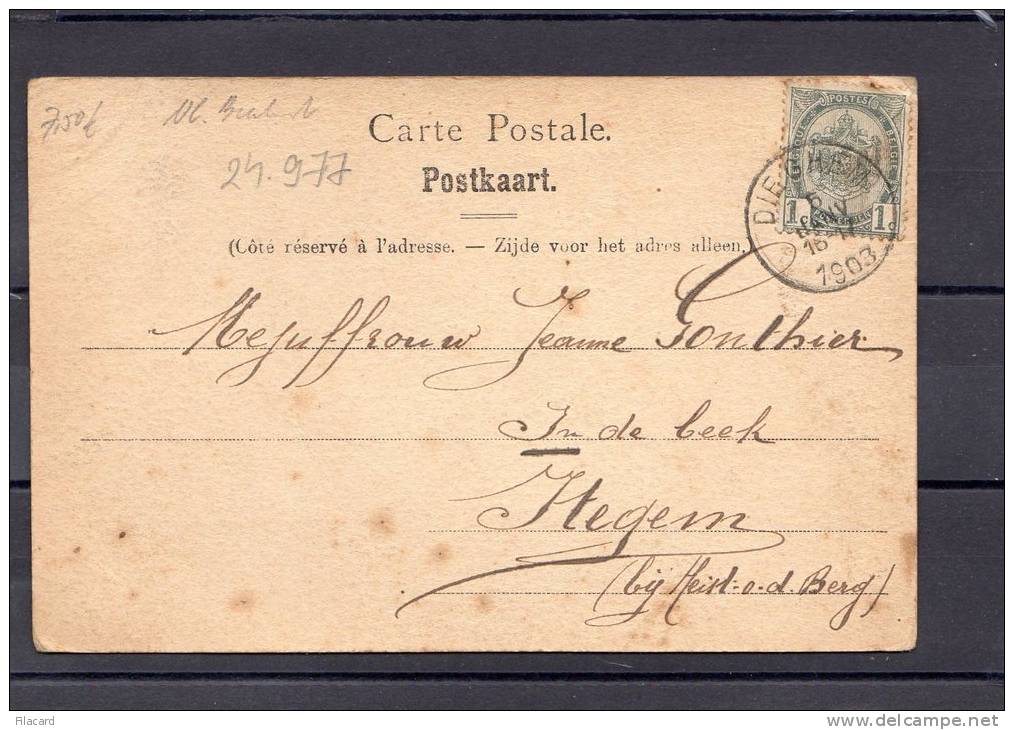 7.50€ Vl. Brabant
24.977
Carte Postale.
Postkaart.
(Côté réservé à l'adresse. — Zijde voor het adres alleen.)
POSTES
BELGIQUE BELGIE
1c 1c
DIEGHEM
5
JANV
16-17
1903
Mejuffrouw Jeanne Gonthier
In de beek
Itegem
(bij Heist-o-d. Berg)
filacard
www.delcampe.net